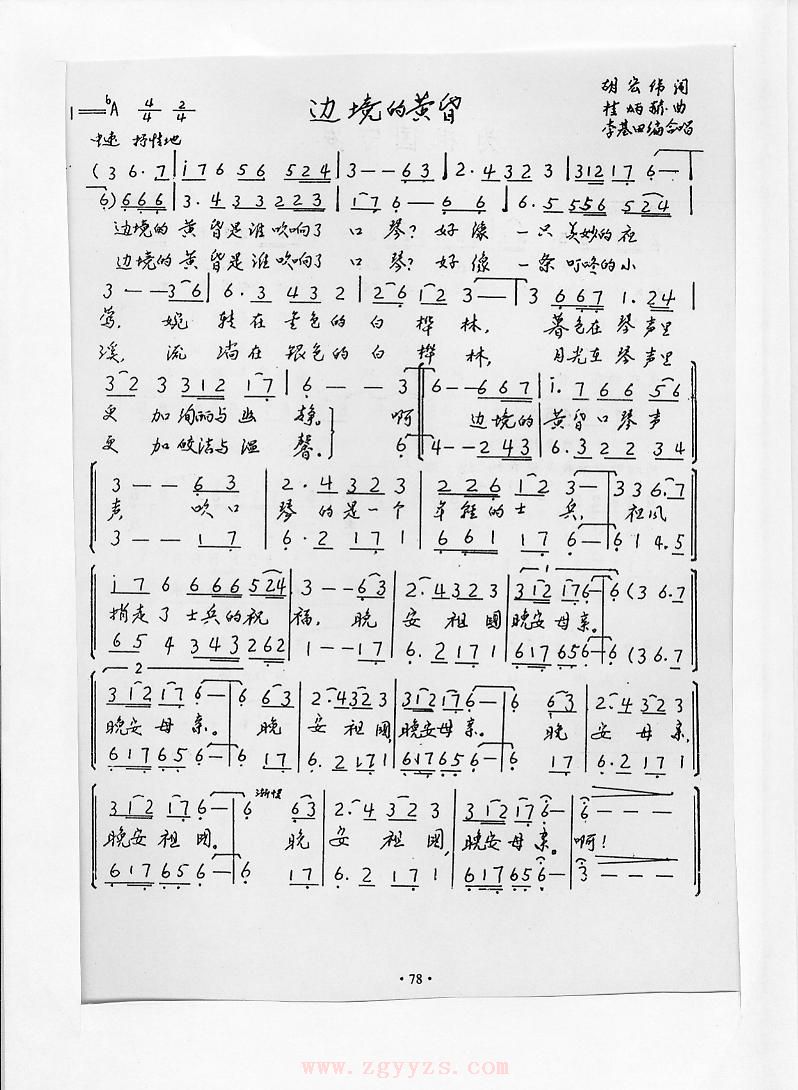 边境的黄昏
胡宏伟 词
1=♭A 4/4 2/4
桂炳 曲
李基田编合唱
中速 抒情地
(3 6·7 | i 7 6 5 6 5 2 4 | 3 - - 6 3 | 2· 4 3 2 3 | 3 1 2 1 7 6 - |
6) 6 6 6 | 3· 4 3 3 2 2 3 | 1 7 6 - 6 6 | 6· 5 5 5 6 5 2 4
边境的 黄昏是谁吹响了 口琴? 好像 一只美妙的夜
边境的 黄昏是谁吹响了 口琴? 好像 一条叮咚的小
3 - - 3 6 | 6· 3 4 3 2 | 2 6 1 2 3 - | 3 6 6 7 1· 2 4
莺, 婉转在金色的白桦林, 暮色在琴声里
溪, 流淌在银色的白桦林, 月光在琴声里
3 2 3 3 1 2 1 7 | 6 - - 3 | 6 - - 6 6 7 | i· 7 6 6 5 6
更加绚丽与幽静。 啊 边境的 黄昏口琴声
更加皎洁与温馨。
6 | 4 - - 2 4 3 | 6· 3 2 2 3 4
3 - - 6 3 | 2· 4 3 2 3 | 2 2 6 1 2 3 - | 3 3 6· 7
声 吹口 琴的是一个 年轻的士兵, 祖风
3 - - 1 7 | 6· 2 1 7 1 | 6 6 1 1 7 6 - | 6 1 4· 5
1
i 7 6 6 6 6 5 2 4 | 3 - - 6 3 | 2· 4 3 2 3 | 3 1 2 1 7 6 - | 6 (3 6· 7
捎走了士兵的祝 福, 晚安祖国 晚安母亲。
6 5 4 3 4 3 2 6 2 | 1 - - 1 7 | 6· 2 1 7 1 | 6 1 7 6 5 6 - | 6 (3 6· 7
2
3 1 2 1 7 6 - | 6 6 3 | 2· 4 3 2 3 | 3 1 2 1 7 6 - | 6 6 3 | 2· 4 3 2 3
晚安母亲。 晚安祖国, 晚安母亲。 晚安母亲,
6 1 7 6 5 6 - | 6 1 7 | 6· 2 1 7 1 | 6 1 7 6 5 6 - | 6 1 7 | 6· 2 1 7 1
渐慢
3 1 2 1 7 6 - | 6 6 3 | 2· 4 3 2 3 | 3 1 2 1 7 6 - | 6 - - -
晚安祖国。 晚安祖国, 晚安母亲。 啊!
6 1 7 6 5 6 - | 6 1 7 | 6· 2 1 7 1 | 6 1 7 6 5 6 - | 3 - - -
·78·
www.zgyyzs.com